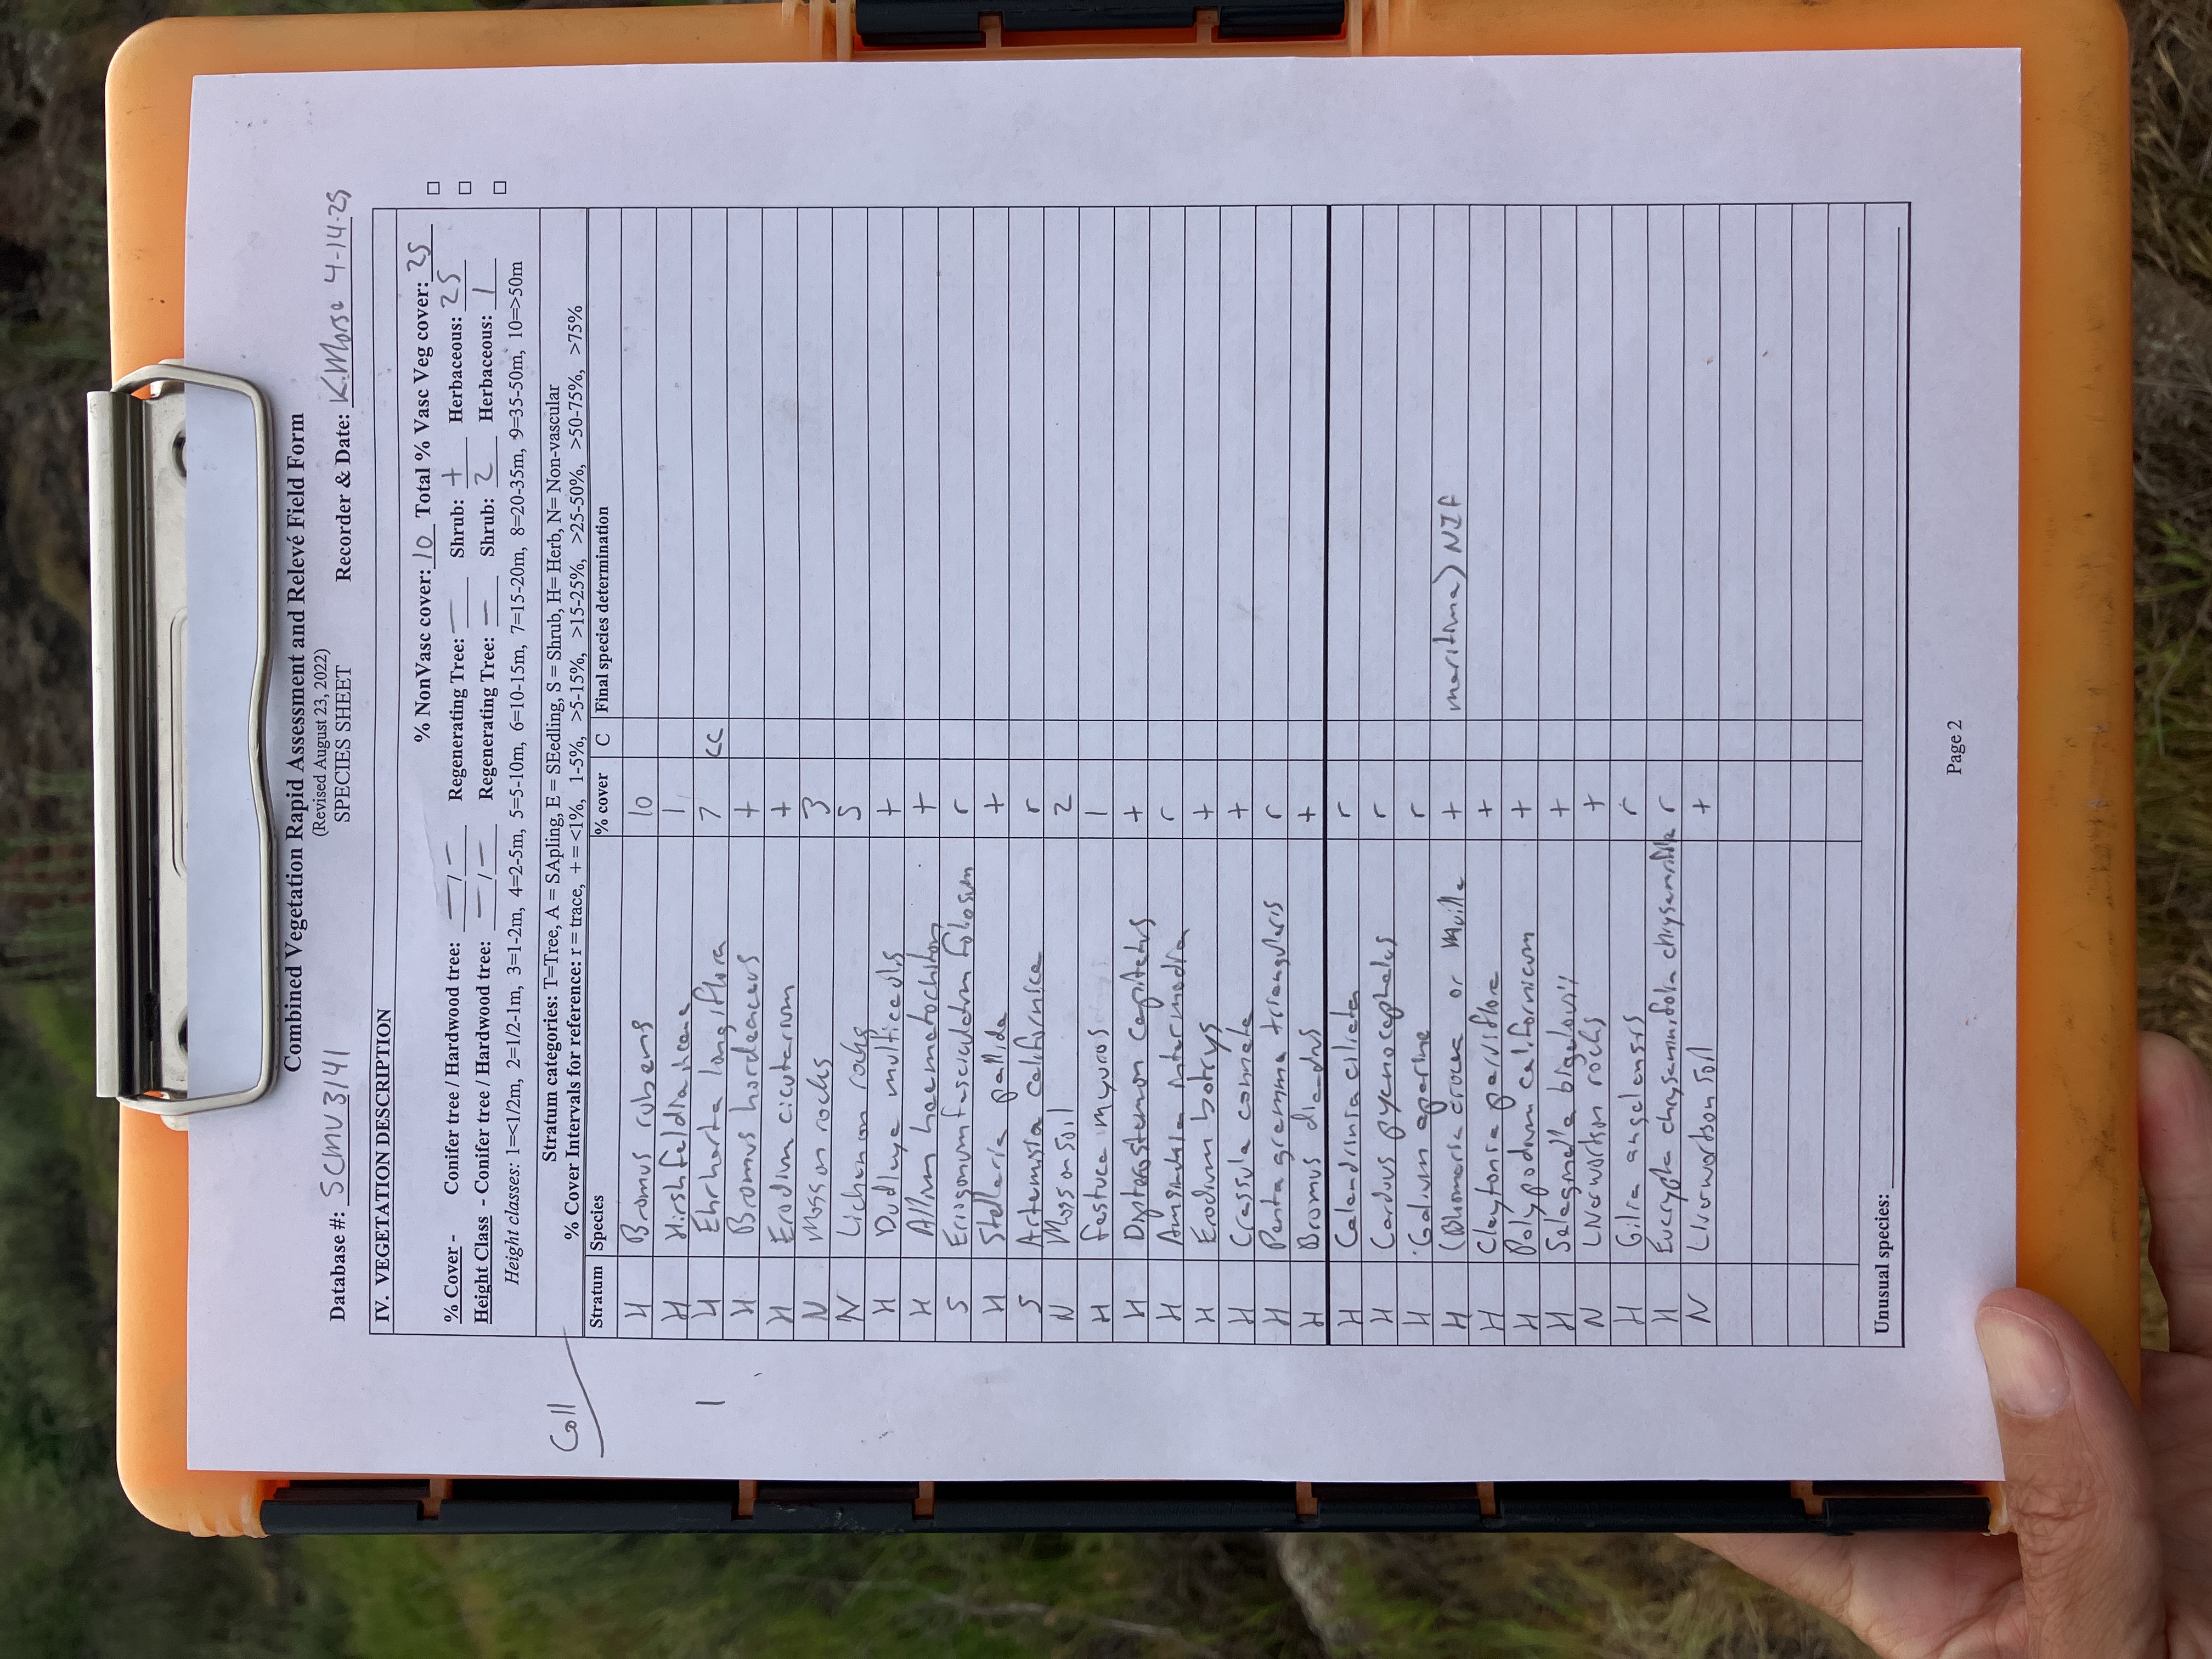 Combined Vegetation Rapid Assessment and Relevé Field Form
(Revised August 23, 2022)
SPECIES SHEET
Database #: SCMV3141 Recorder & Date: K.Morse 4-14-25
IV. VEGETATION DESCRIPTION
% NonVasc cover: 10 Total % Vasc Veg cover: 25
% Cover - Conifer tree / Hardwood tree: — / — Regenerating Tree: — Shrub: + Herbaceous: 25
Height Class - Conifer tree / Hardwood tree: — / — Regenerating Tree: — Shrub: 2 Herbaceous: 1
Height classes: 1=<1/2m, 2=1/2-1m, 3=1-2m, 4=2-5m, 5=5-10m, 6=10-15m, 7=15-20m, 8=20-35m, 9=35-50m, 10=>50m
Stratum categories: T=Tree, A = SApling, E = SEedling, S = Shrub, H= Herb, N= Non-vascular
% Cover Intervals for reference: r = trace, + = <1%, 1-5%, >5-15%, >15-25%, >25-50%, >50-75%, >75%
Coll
Stratum Species % cover C Final species determination
H Bromus rubens 10
H Hirshfeldia incana 1
1 H Ehrharta longiflora 7 CC
H Bromus hordeaceus +
H Erodium cicutarium +
N Moss on rocks 3
N Lichen on rocks 5
H Dudleya multicaulis +
H Allium haematochiton +
S Eriogonum fasciculatum foliosum r
H Stellaria pallida +
S Artemisia californica r
N Moss on soil 2
H Festuca myuros 1
H Dipterostemon capitatus +
H Amsinckia intermedia r
H Erodium botrys +
H Crassula connata +
H Pentagramma triangularis r
H Bromus diandrus +
H Calandrinia ciliata r
H Carduus pycnocephalus r
H Galium aparine r
H (Bloomeria crocea or Muilla + maritima) NIF
H Claytonia parviflora +
H Polypodium californicum +
H Selaginella bigelovii +
N Liverwort on rocks +
H Gilia angelensis r
H Eucrypta chrysanthemifolia chrysanthemifolia r
N Liverwort on soil +
Unusual species:
Page 2